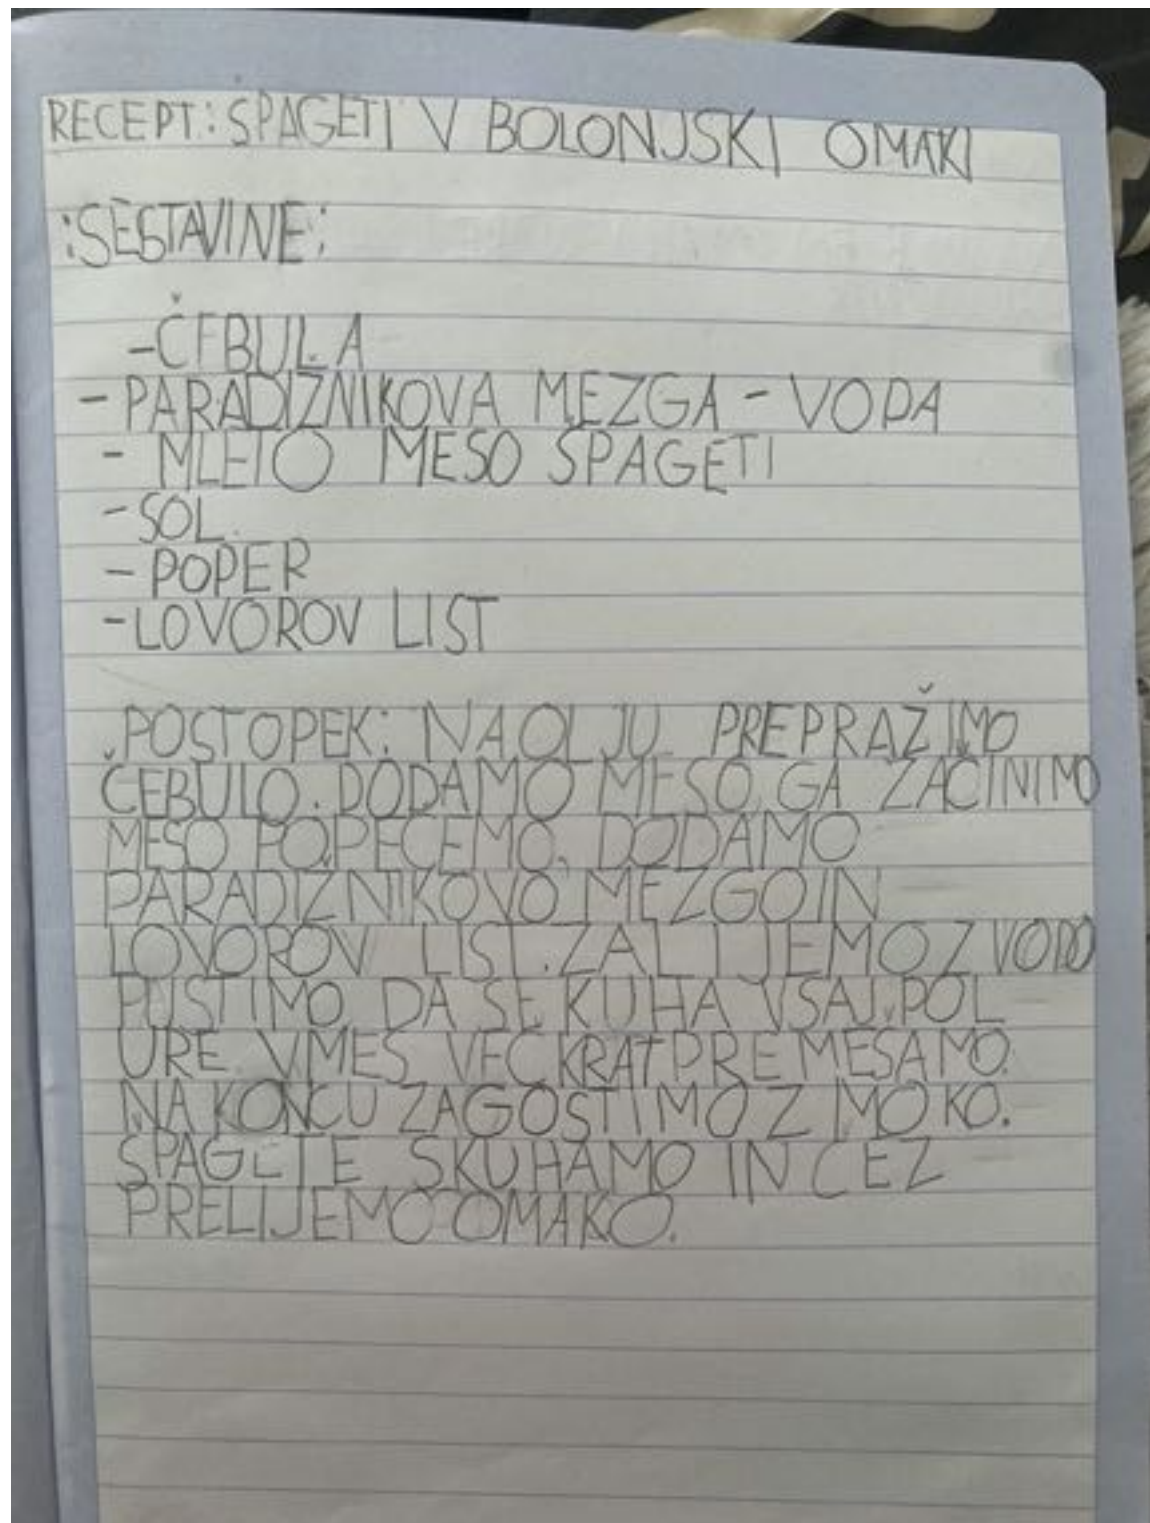 RECEPT: ŠPAGETI V BOLONJSKI OMAKI
:SESTAVINE:
-ČEBULA
- PARADIŽNIKOVA MEZGA - VODA
- MLETO MESO ŠPAGETI
- SOL
- POPER
- LOVOROV LIST
POSTOPEK: NA OLJU PREPRAŽIMO
ČEBULO. DODAMO MESO, GA ZAČINIMO
MESO POPEČEMO, DODAMO
PARADIŽNIKOVO MEZGO IN
LOVOROV LIST. ZALIJEMO Z VODO
PUSTIMO, DA SE KUHA VSAJ POL
URE. VMES VEČKRAT PREMEŠAMO.
NA KONCU ZAGOSTIMO Z MOKO.
ŠPAGETE SKUHAMO IN ČEZ
PRELIJEMO OMAKO.